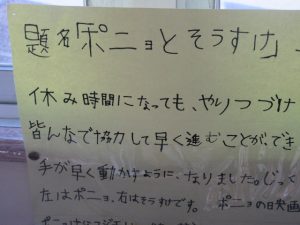 題名「ポニョとそうすけ」
休み時間になっても、やりつづけ
皆んなで協力して早く進むことが、でき
手が早く動かすように、なりました。じっく
左はポニョ、右はそうすけです。 ポニョの映画